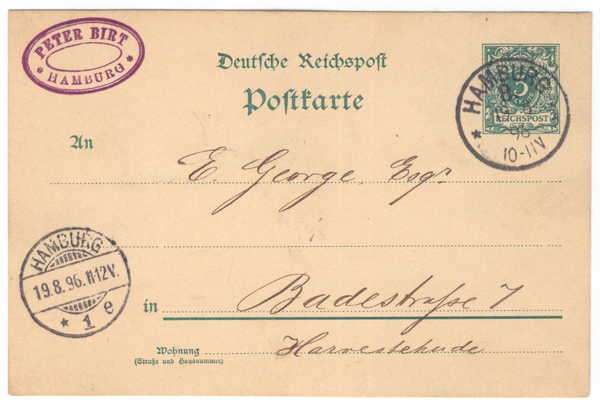 PETER BIRT
* HAMBURG *
Deutsche Reichspost
Postkarte
5
REICHSPOST
HAMBURG
8
19.8.
96
10-11V
*
An
E. George, Esqr.
HAMBURG
19.8.96.11-12V.
* 1 e
in
Badestraße 7
Wohnung
(Straße und Hausnummer)
Harvestehude